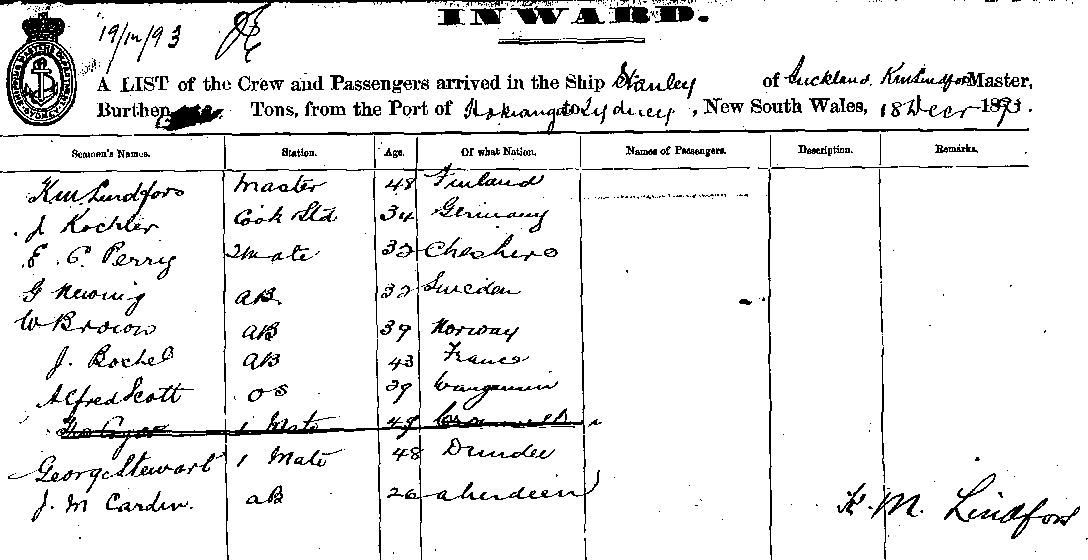 INWARD.
19/12/93
A LIST of the Crew and Passengers arrived in the Ship Stanley of Auckland KMLindfors Master,
Burthen Tons, from the Port of Hokianga to Sydney, New South Wales, 18 Decr 1893.
Seamen's Names. Station. Age. Of what Nation. Names of Passengers. Description. Remarks.
KM Lindfors Master 48 Finland
J Kochler Cook Std 34 Germany
E. C. Perry 2 Mate 32 Cheshire
G AB. 32 Sweden
W Brown AB 39 Norway
J. Bochel AB 43 France
Alfred Scott OS 39
1 Mate 48
George Stewart 1 Mate 48 Dundee
J. M Carden. AB 26 Aberdeen
K. M. Lindfors